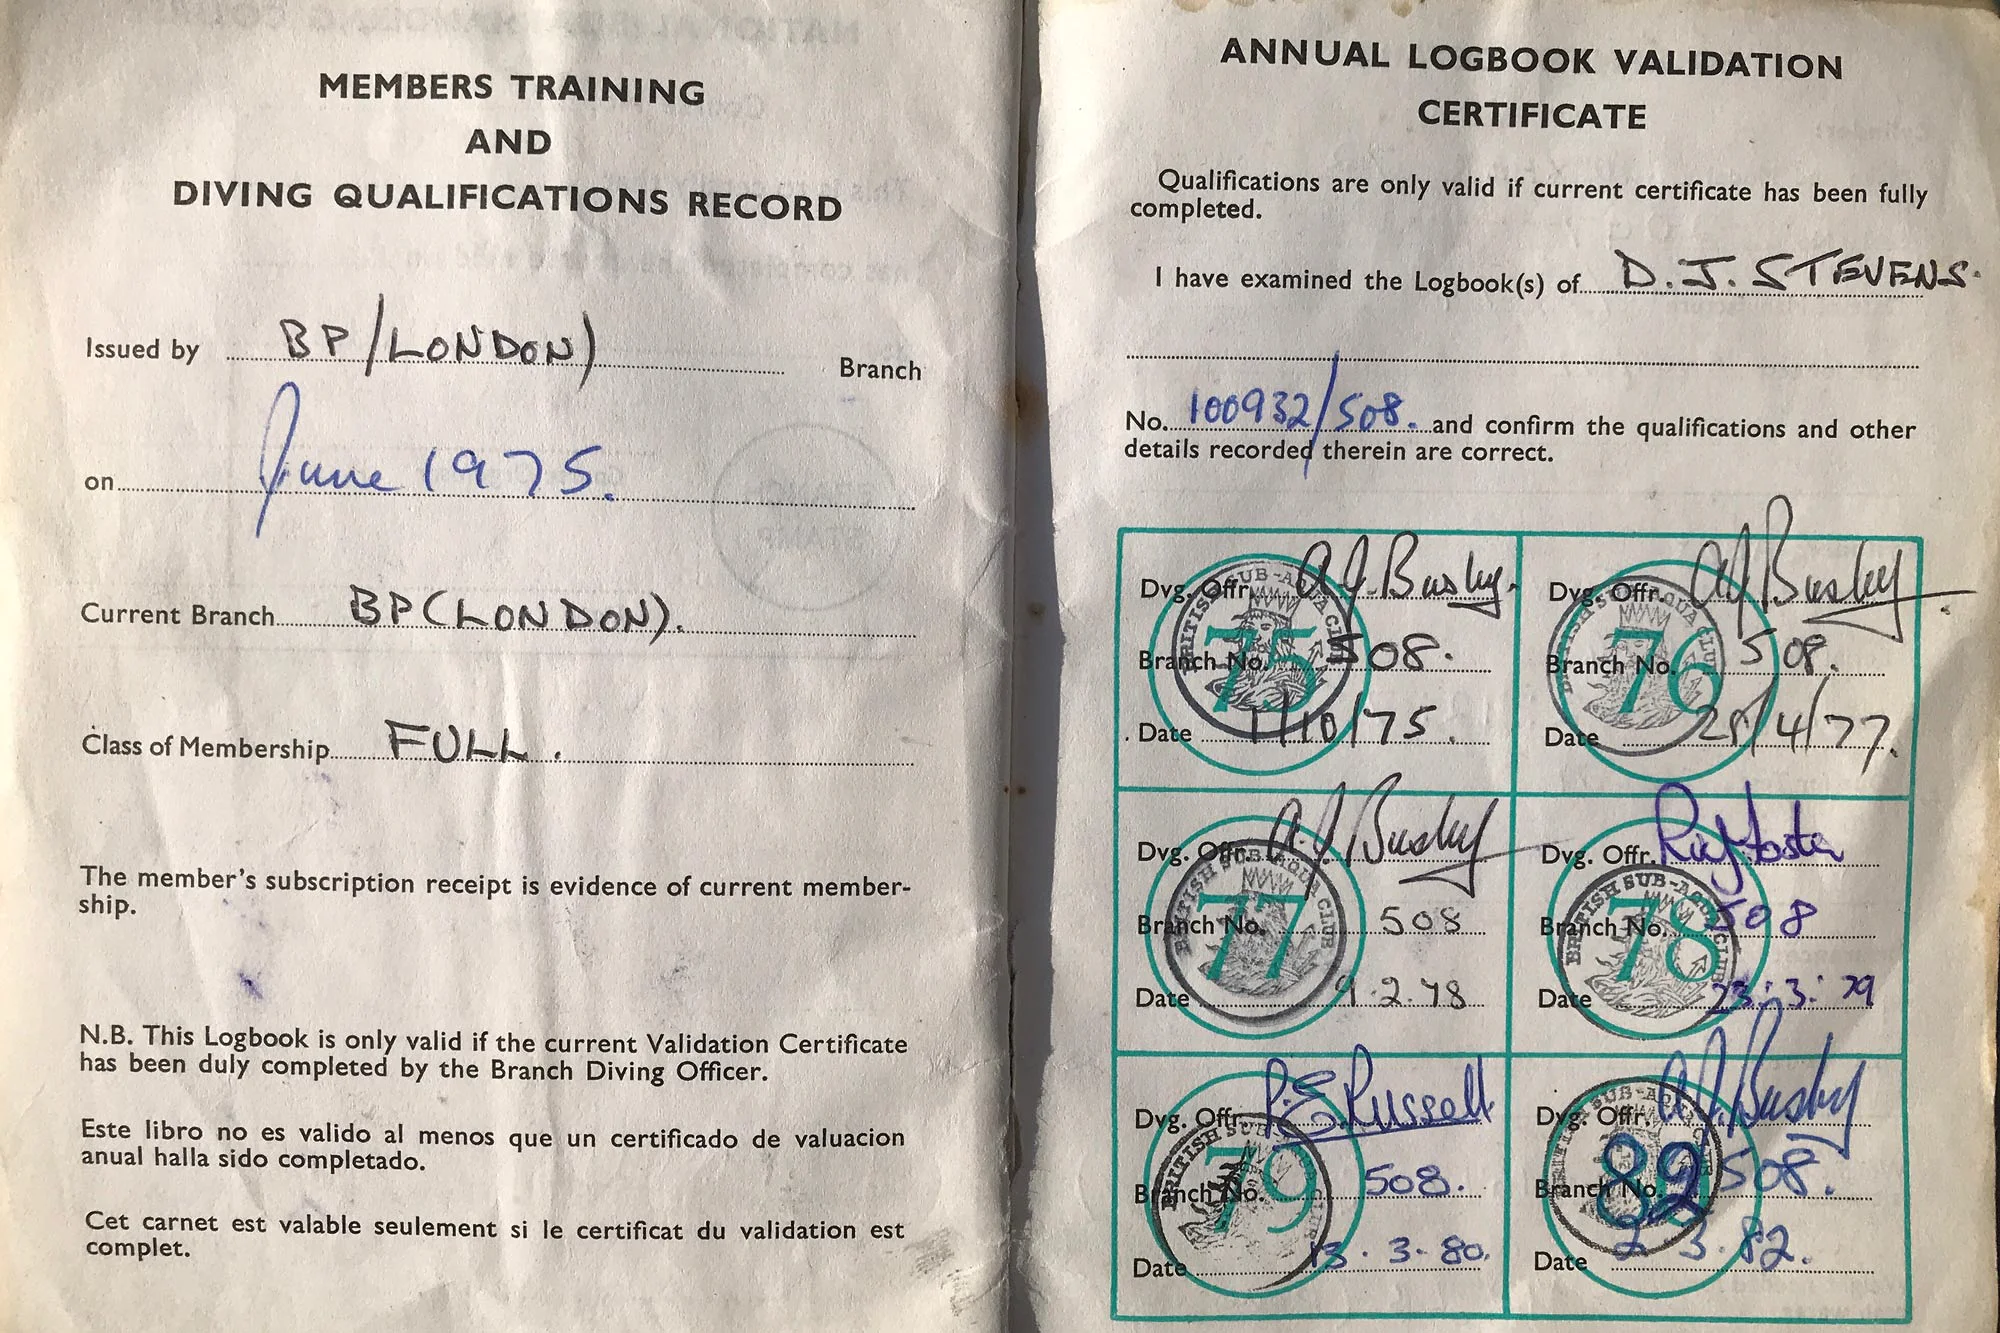 MEMBERS TRAINING
AND
DIVING QUALIFICATIONS RECORD
Issued by BP/LONDON) Branch
on June 1975.
Current Branch BP(LONDON).
Class of Membership FULL.
The member's subscription receipt is evidence of current member-
ship.
N.B. This Logbook is only valid if the current Validation Certificate
has been duly completed by the Branch Diving Officer.
Este libro no es valido al menos que un certificado de valuacion
anual halla sido completado.
Cet carnet est valable seulement si le certificat du validation est
complet.
ANNUAL LOGBOOK VALIDATION
CERTIFICATE
Qualifications are only valid if current certificate has been fully
completed.
I have examined the Logbook(s) of D. J. STEVENS.
No. 100932/508. and confirm the qualifications and other
details recorded therein are correct.
BRITISH SUB-AQUA CLUB
75
Dvg. Offr. A J. Busby.
Branch No. 508.
Date 1/10/75.
BRITISH SUB-AQUA CLUB
76
Dvg. Offr. A J Busby
Branch No. 508.
Date 28/4/77.
BRITISH SUB-AQUA CLUB
77
Dvg. Offr. A J Busby
Branch No. 508
Date 9.2.78
BRITISH SUB-AQUA CLUB
78
Dvg. Offr.
Branch No. 508
Date 23.3.79
BRITISH SUB-AQUA CLUB
79
Dvg. Offr. P.E. Russell
Branch No. 508.
Date 13.3.80.
BRITISH SUB-AQUA CLUB
82
Dvg. Offr. A J Busby
Branch No. 508.
Date 2 3.82.